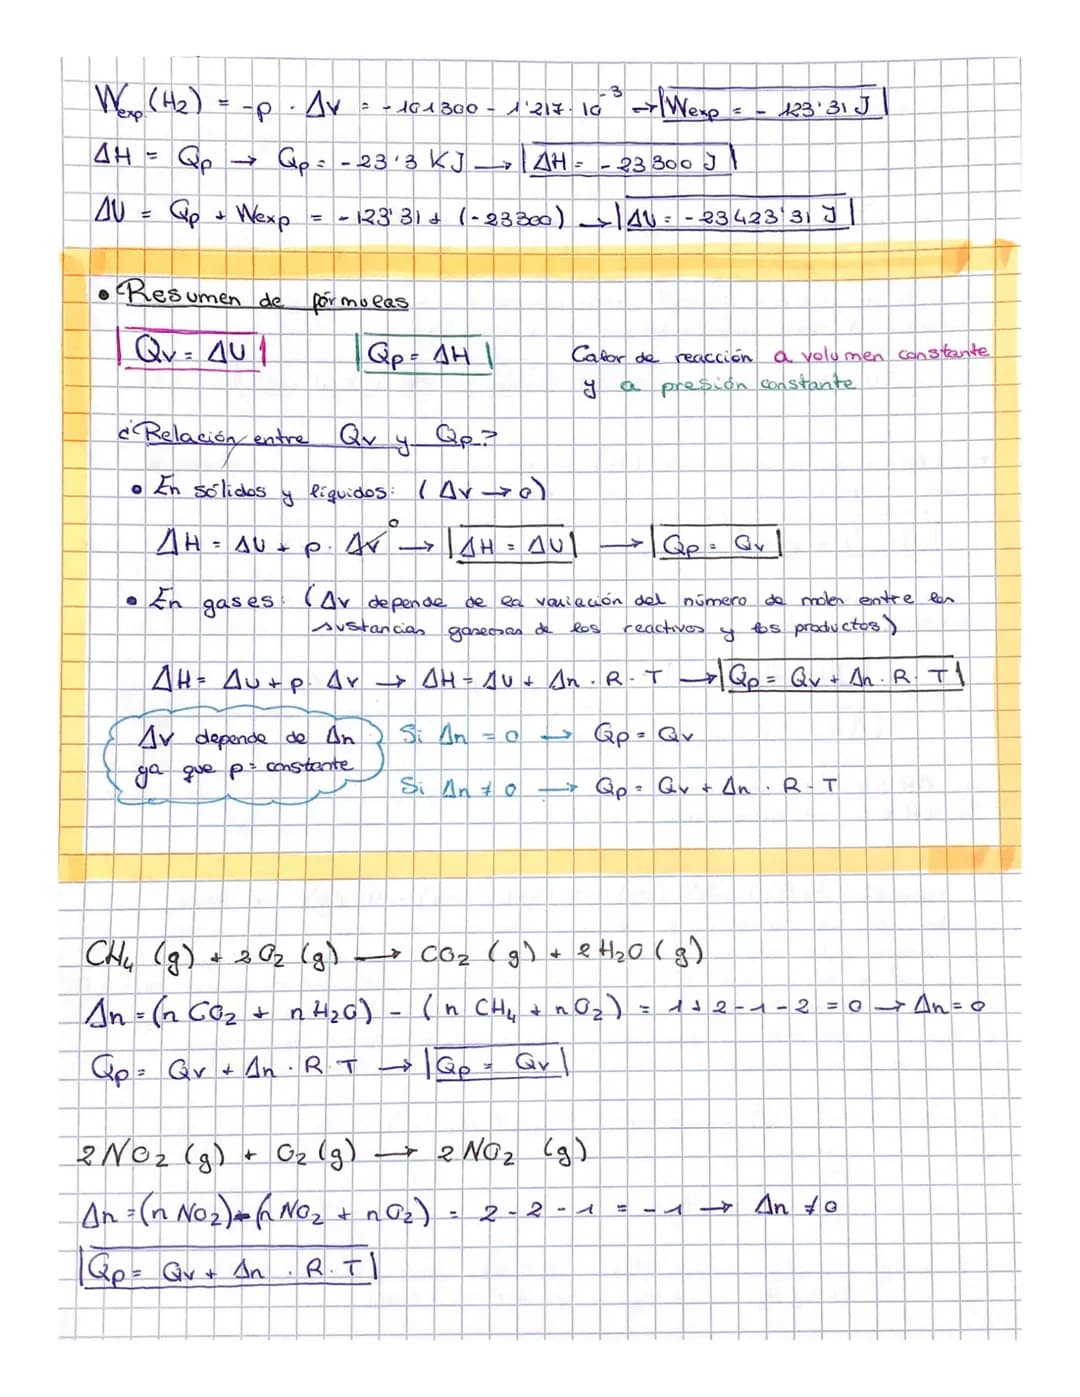 Wexp (H₂) = -p · ΔV = -101300 - 1'217 · 10⁻³ → Wexp = - 123'31 J
ΔH = Qp → Qp = - 23'3 KJ → ΔH = - 23300 J
ΔU = Qp + Wexp = - 123'31 + (-23300) → ΔU = - 23423'31 J
• Resumen de fórmulas
Qv = ΔU Qp = ΔH Calor de reacción a volumen constante
y a presión constante
¿Relación entre Qv y Qp?
• En sólidos y líquidos: (ΔV → 0)
ΔH = ΔU + p · ΔV⁰ → ΔH = ΔU → Qp = Qv
• En gases: (ΔV depende de la variación del número de moles entre las
sustancias gaseosas de los reactivos y los productos)
ΔH = ΔU + p · ΔV → ΔH = ΔU + Δn · R · T → Qp = Qv + Δn · R · T
ΔV depende de Δn Si Δn = 0 → Qp = Qv
ya que p = constante Si Δn ≠ 0 → Qp = Qv + Δn · R · T
CH₄ (g) + 2 O₂ (g) → CO₂ (g) + 2 H₂O (g)
Δn = (n CO₂ + n H₂O) - (n CH₄ + n O₂) = 1 + 2 - 1 - 2 = 0 → Δn = 0
Qp = Qv + Δn · R · T → Qp = Qv
2 NO₂ (g) + O₂ (g) → 2 NO₂ (g)
Δn = (n NO₂) - (n NO₂ + n O₂) = 2 - 2 - 1 = - 1 → Δn ≠ 0
Qp = Qv + Δn · R · T